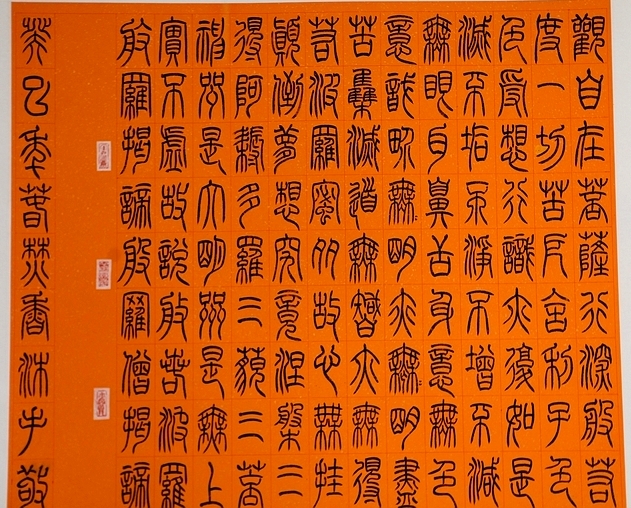 觀自在菩薩行深般若
度一切苦厄舍利子色
色受想行識亦復如是
滅不垢不淨不增不減
無眼耳鼻舌身意無色
意識界無明亦無明盡
苦集滅道無智亦無得
若波羅蜜多故心無挂
顛倒夢想究竟涅槃三
得阿耨多羅三藐三菩
神咒是大明咒是無上
實不虛故說般若波羅
般羅揭諦般羅僧揭諦
癸巳年春焚香沐手敬